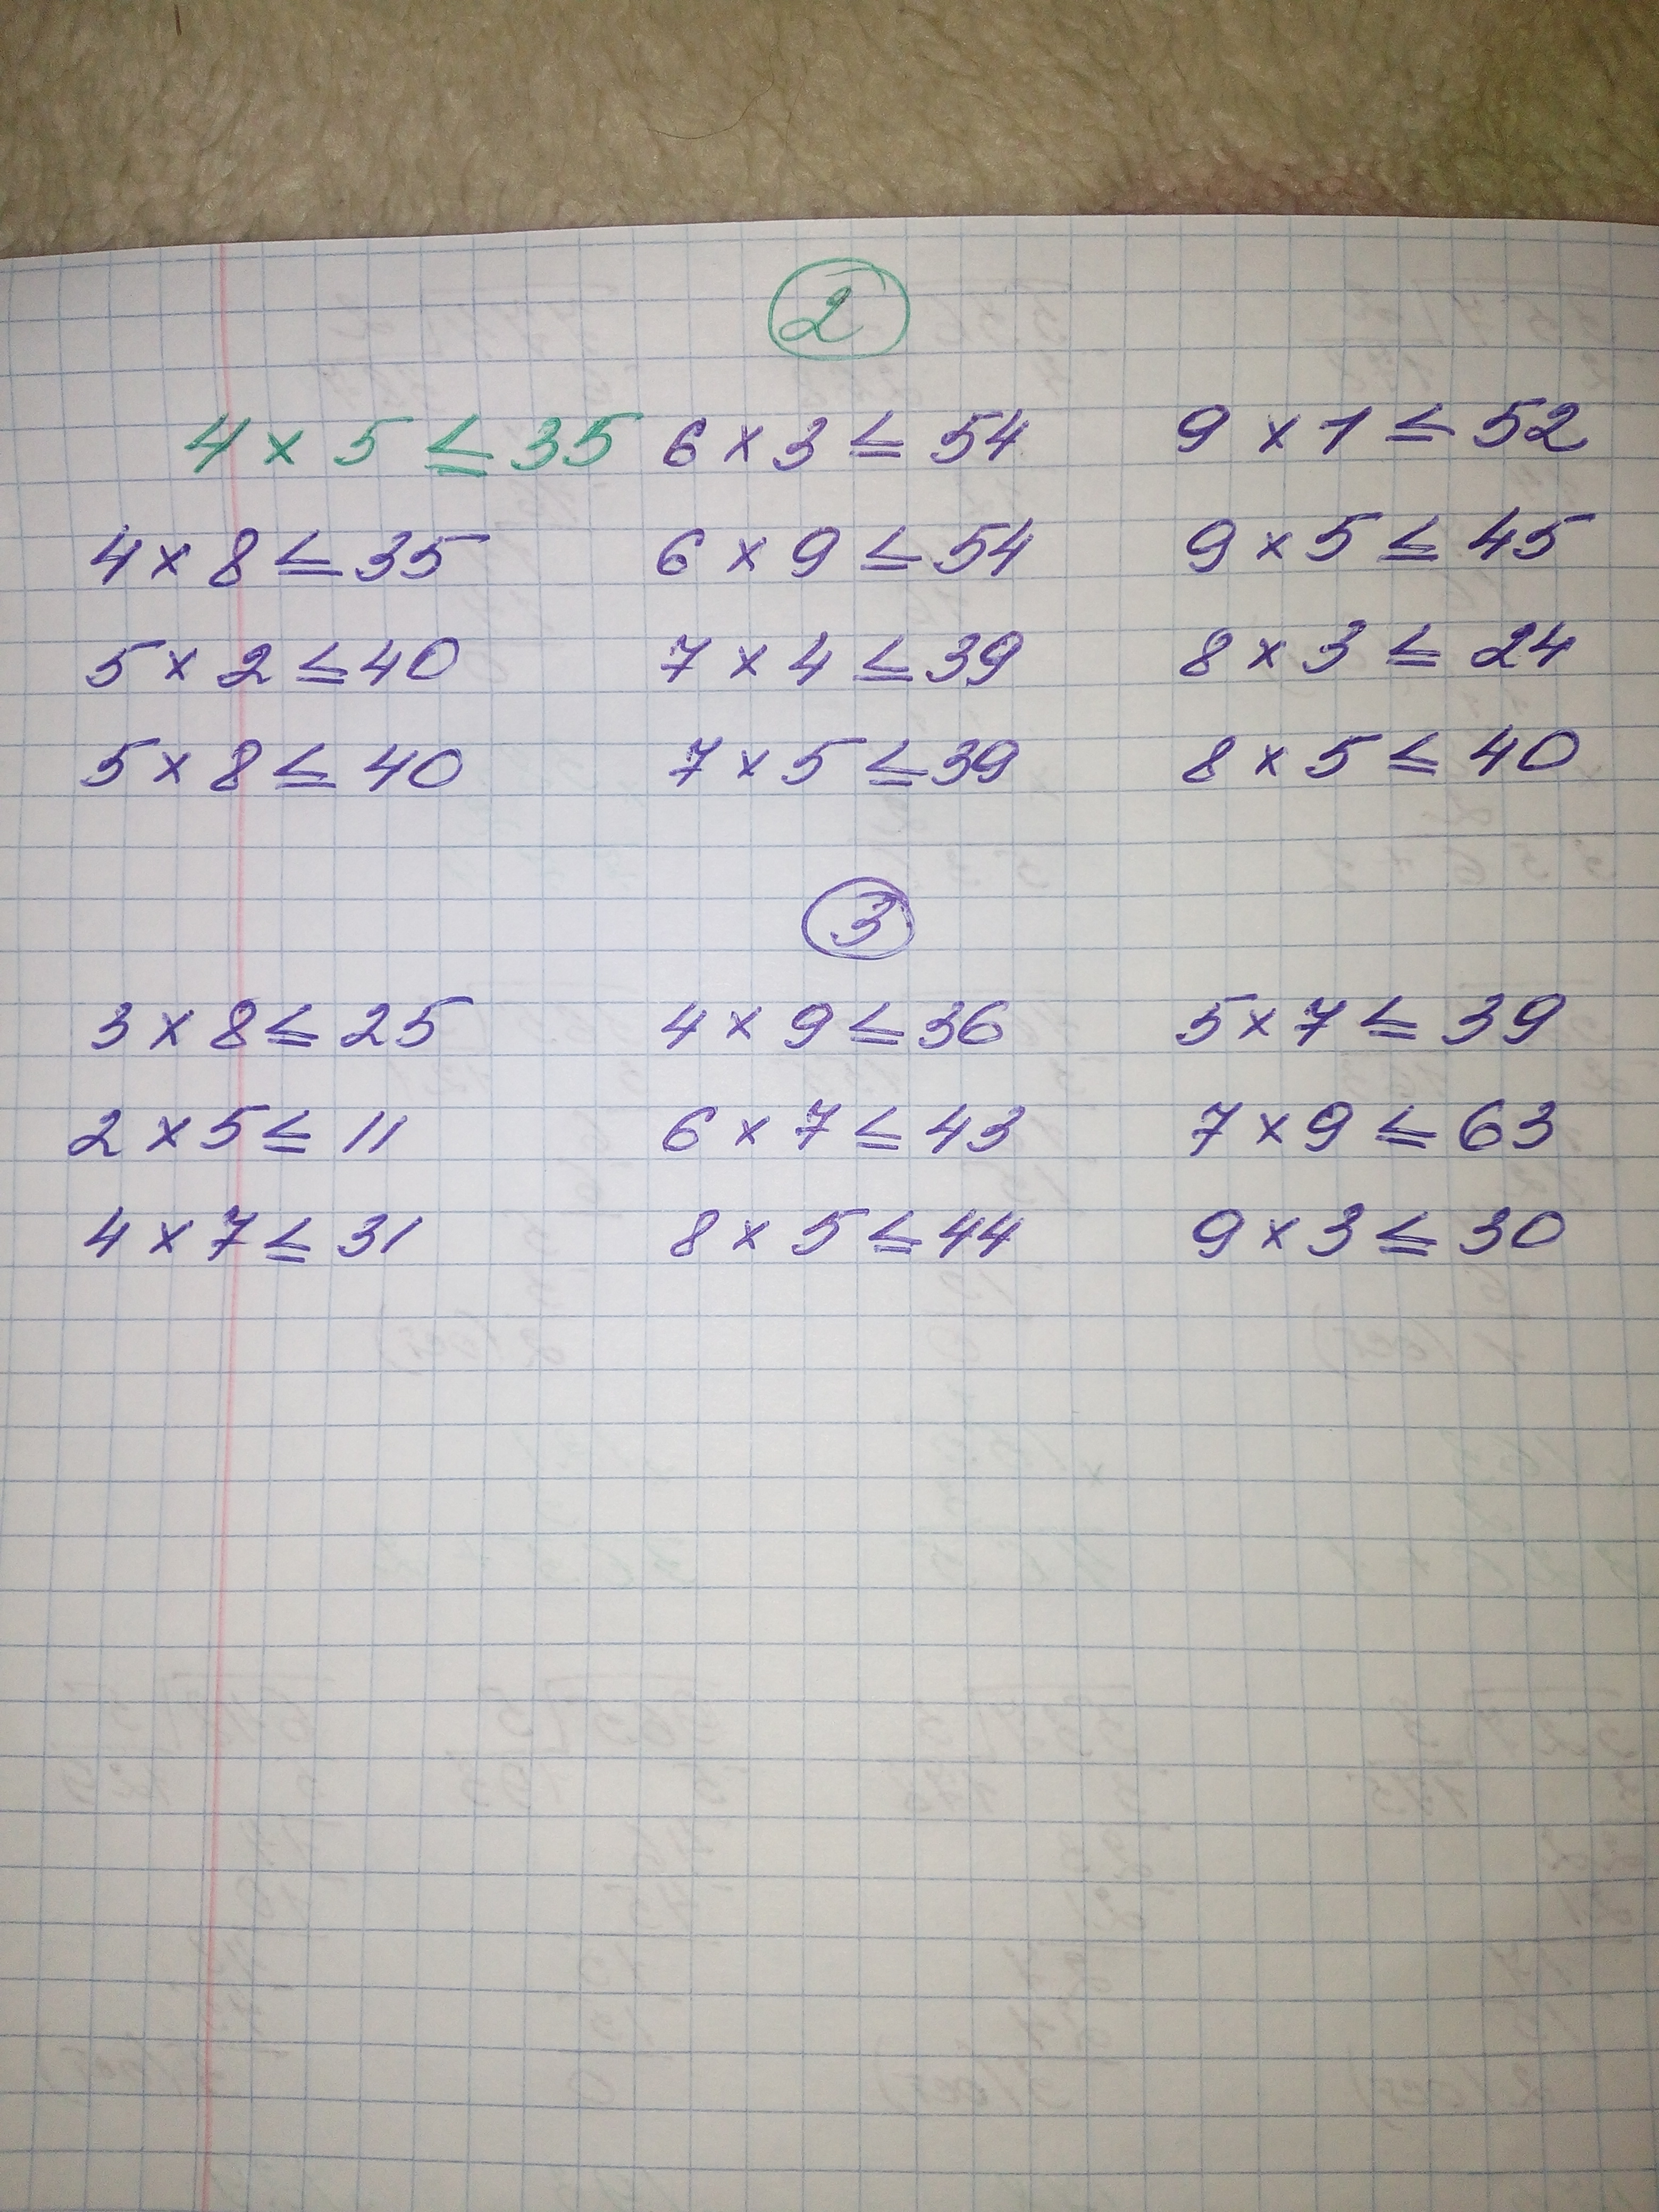 2
4 × 5 ≤ 35 6 × 3 ≤ 54 9 × 1 ≤ 52
4 × 8 ≤ 35 6 × 9 ≤ 54 9 × 5 ≤ 45
5 × 2 ≤ 40 7 × 4 ≤ 39 8 × 3 ≤ 24
5 × 8 ≤ 40 7 × 5 ≤ 39 8 × 5 ≤ 40
3
3 × 8 ≤ 25 4 × 9 ≤ 36 5 × 7 ≤ 39
2 × 5 ≤ 11 6 × 7 ≤ 43 7 × 9 ≤ 63
4 × 7 ≤ 31 8 × 5 ≤ 44 9 × 3 ≤ 30